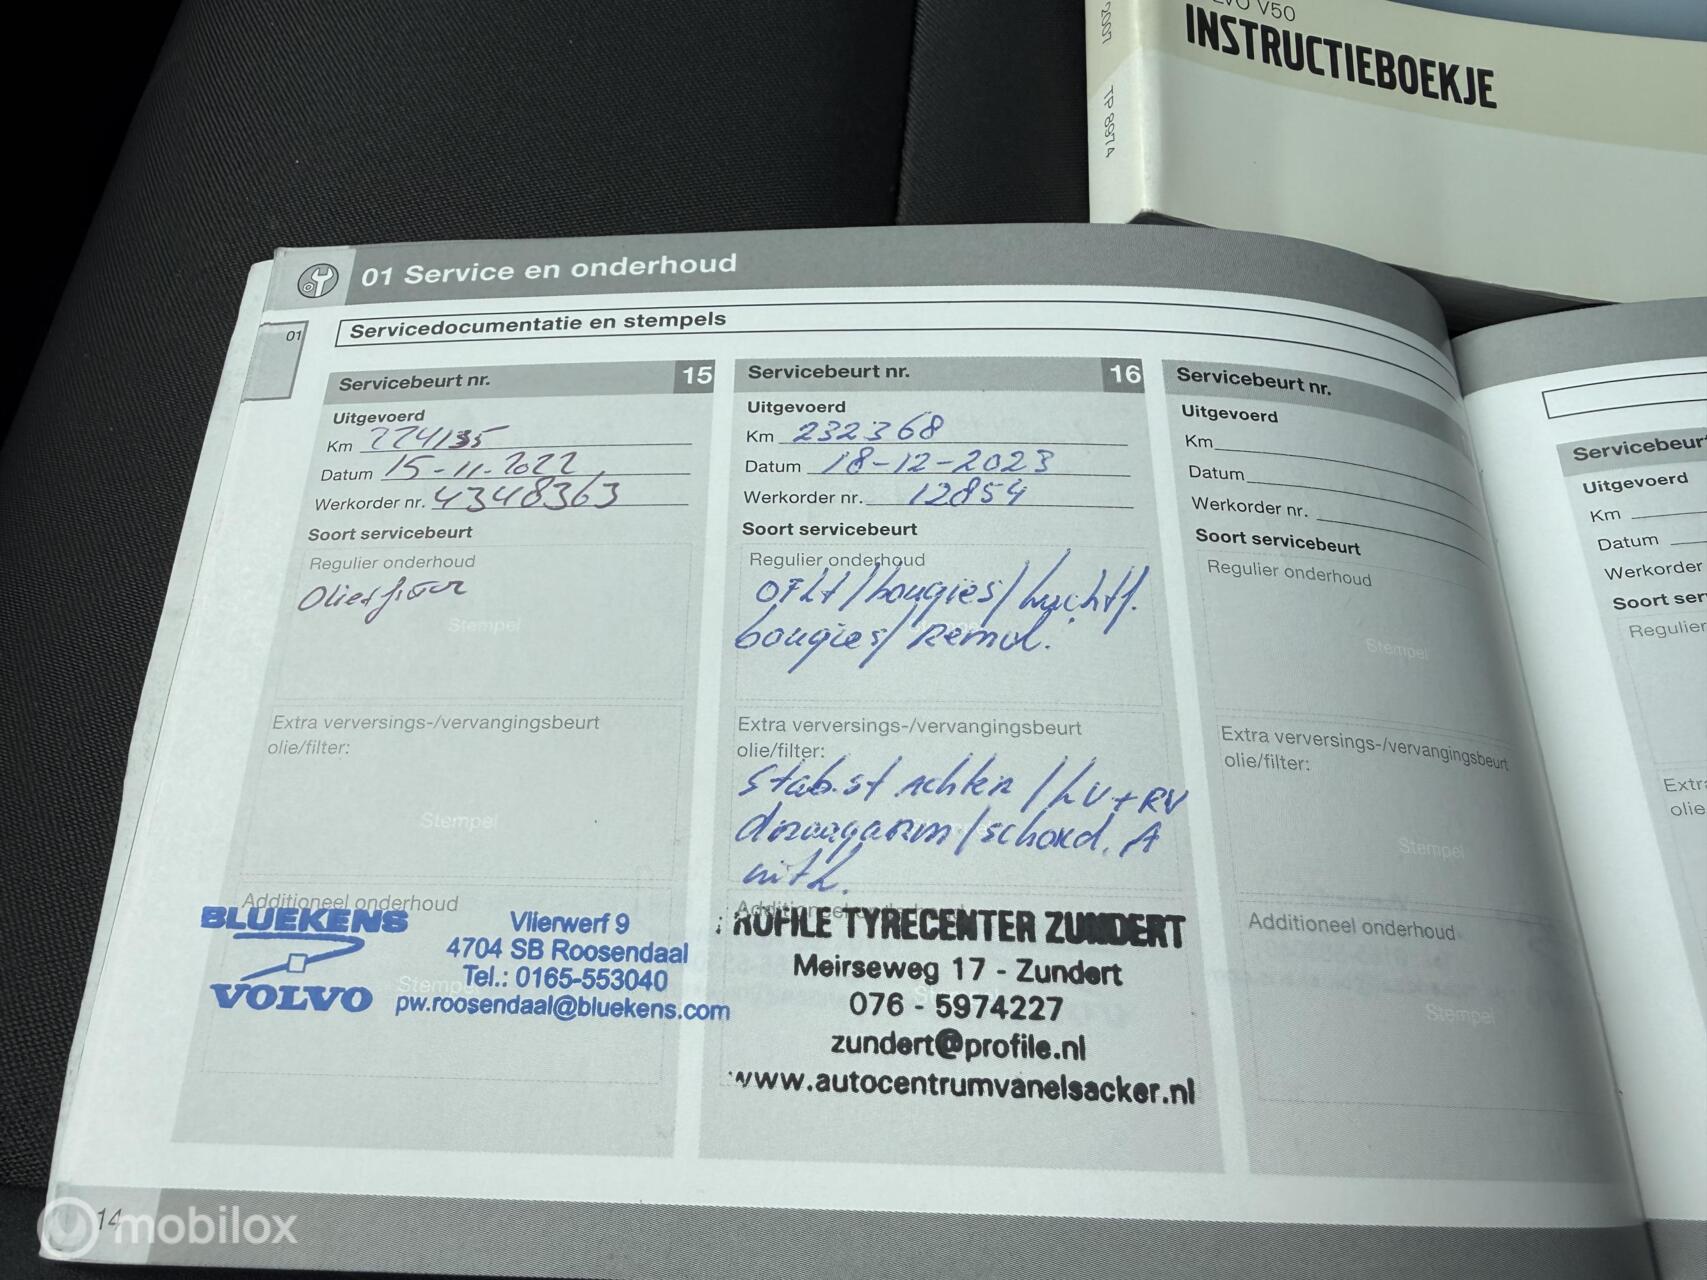 VOLVO V50
INSTRUCTIEBOEKJE
2007 TP 8974
01 Service en onderhoud
01
Servicedocumentatie en stempels
Servicebeurt nr. 15
Uitgevoerd
Km 224135
Datum 15-11-2022
Werkorder nr. 4348363
Soort servicebeurt
Regulier onderhoud
Stempel
Extra verversings-/vervangingsbeurt
olie/filter:
Stempel
Additioneel onderhoud
BLUEKENS
VOLVO
Vlierwerf 9
4704 SB Roosendaal
Tel.: 0165-553040
pw.roosendaal@bluekens.com
Servicebeurt nr. 16
Uitgevoerd
Km 232368
Datum 18-12-2023
Werkorder nr. 12854
Soort servicebeurt
Regulier onderhoud
bougies/
bougies/ Remvl.
Extra verversings-/vervangingsbeurt
olie/filter:
stab.st achter / LV+RV
draagarm/schokd. A
Additioneel onderhoud
ROFILE TYRECENTER ZUNDERT
Meirseweg 17 - Zundert
076 - 5974227
zundert@profile.nl
www.autocentrumvanelsacker.nl
Servicebeurt nr.
Uitgevoerd
Km
Datum
Werkorder nr.
Soort servicebeurt
Regulier onderhoud
Stempel
Extra verversings-/vervangingsbeurt
olie/filter:
Stempel
Additioneel onderhoud
Stempel
Servicebeurt
Uitgevoerd
Km
Datum
Werkorder
Soort ser
Regulier
Extra
olie
14
mobilox